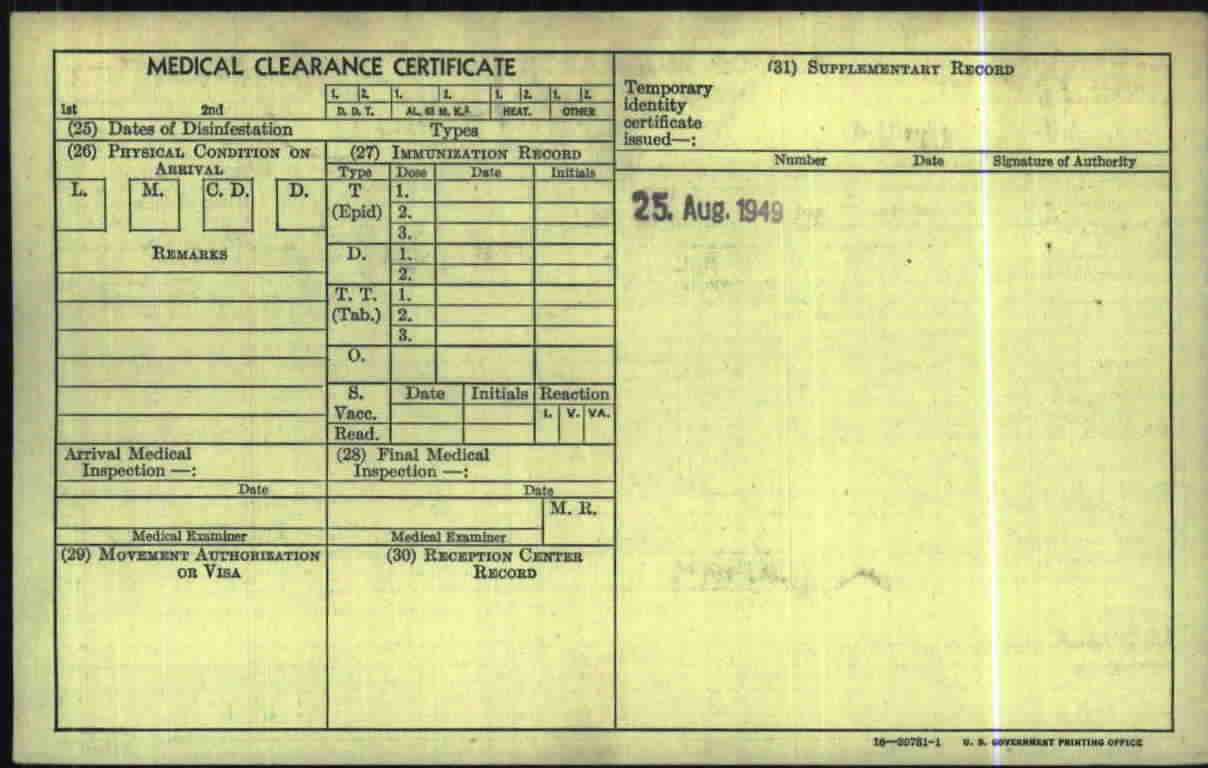 MEDICAL CLEARANCE CERTIFICATE
1. 2. 1. 2. 1. 2. 1. 2.
1st 2nd D. D. T. AL. 63 M. K.3 HEAT. OTHER
(25) Dates of Disinfestation Types
(26) PHYSICAL CONDITION ON ARRIVAL
L. M. C. D. D.
REMARKS
(27) IMMUNIZATION RECORD
Type Dose Date Initials
T (Epid) 1.
2.
3.
D. 1.
2.
T. T. (Tab.) 1.
2.
3.
O.
S. Date Initials Reaction
Vacc. I. V. VA.
Read.
Arrival Medical
Inspection —:
Date
Medical Examiner
(28) Final Medical
Inspection —:
Date
M. R.
Medical Examiner
(29) MOVEMENT AUTHORIZATION
OR VISA
(30) RECEPTION CENTER
RECORD
(31) SUPPLEMENTARY RECORD
Temporary
identity
certificate
issued—:
Number Date Signature of Authority
25. Aug. 1949
U. S. GOVERNMENT PRINTING OFFICE